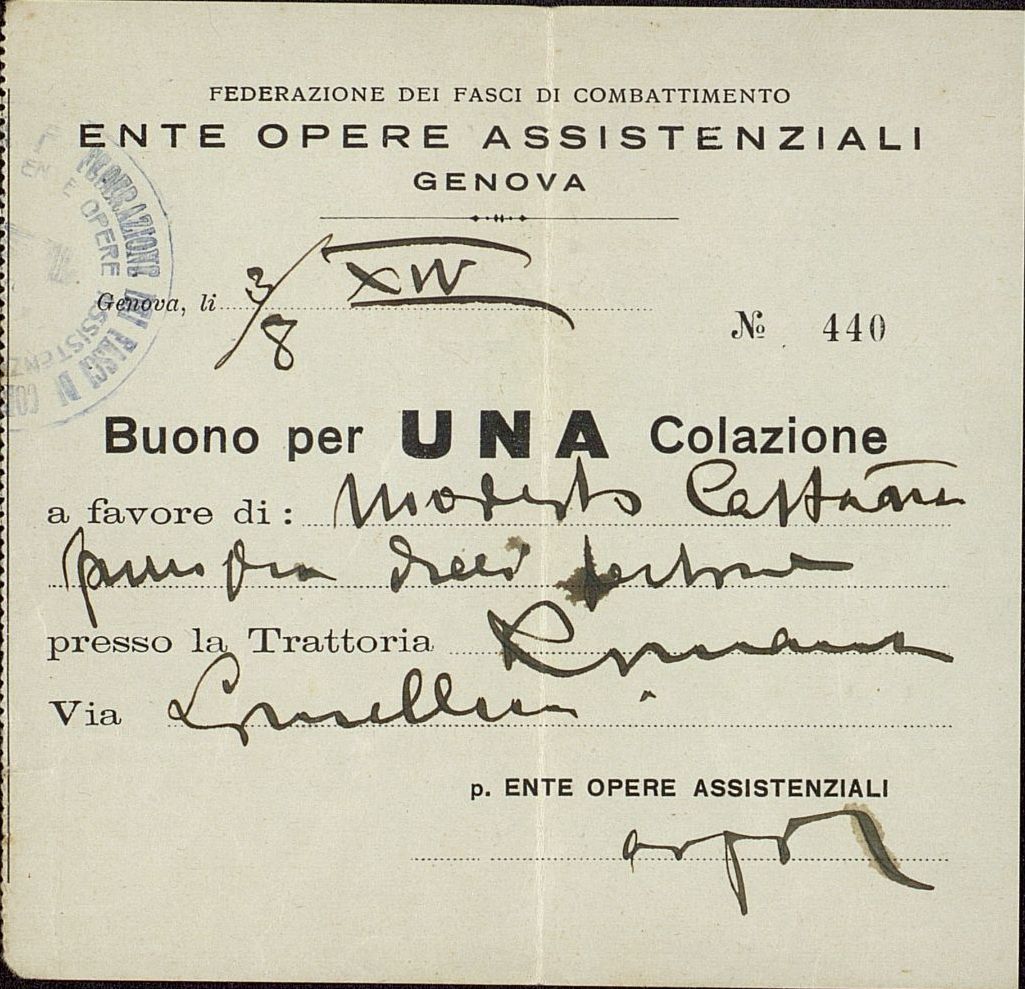 FEDERAZIONE DEI FASCI DI COMBATTIMENTO
ENTE OPERE ASSISTENZIALI
GENOVA
FEDERAZIONE DEI FASCI DI
ENTE OPERE ASSISTENZ
Genova, li 3/8 XIV
№ 440
Buono per UNA Colazione
a favore di: Modesto
dieci persone
presso la Trattoria Romana
Via
p. ENTE OPERE ASSISTENZIALI